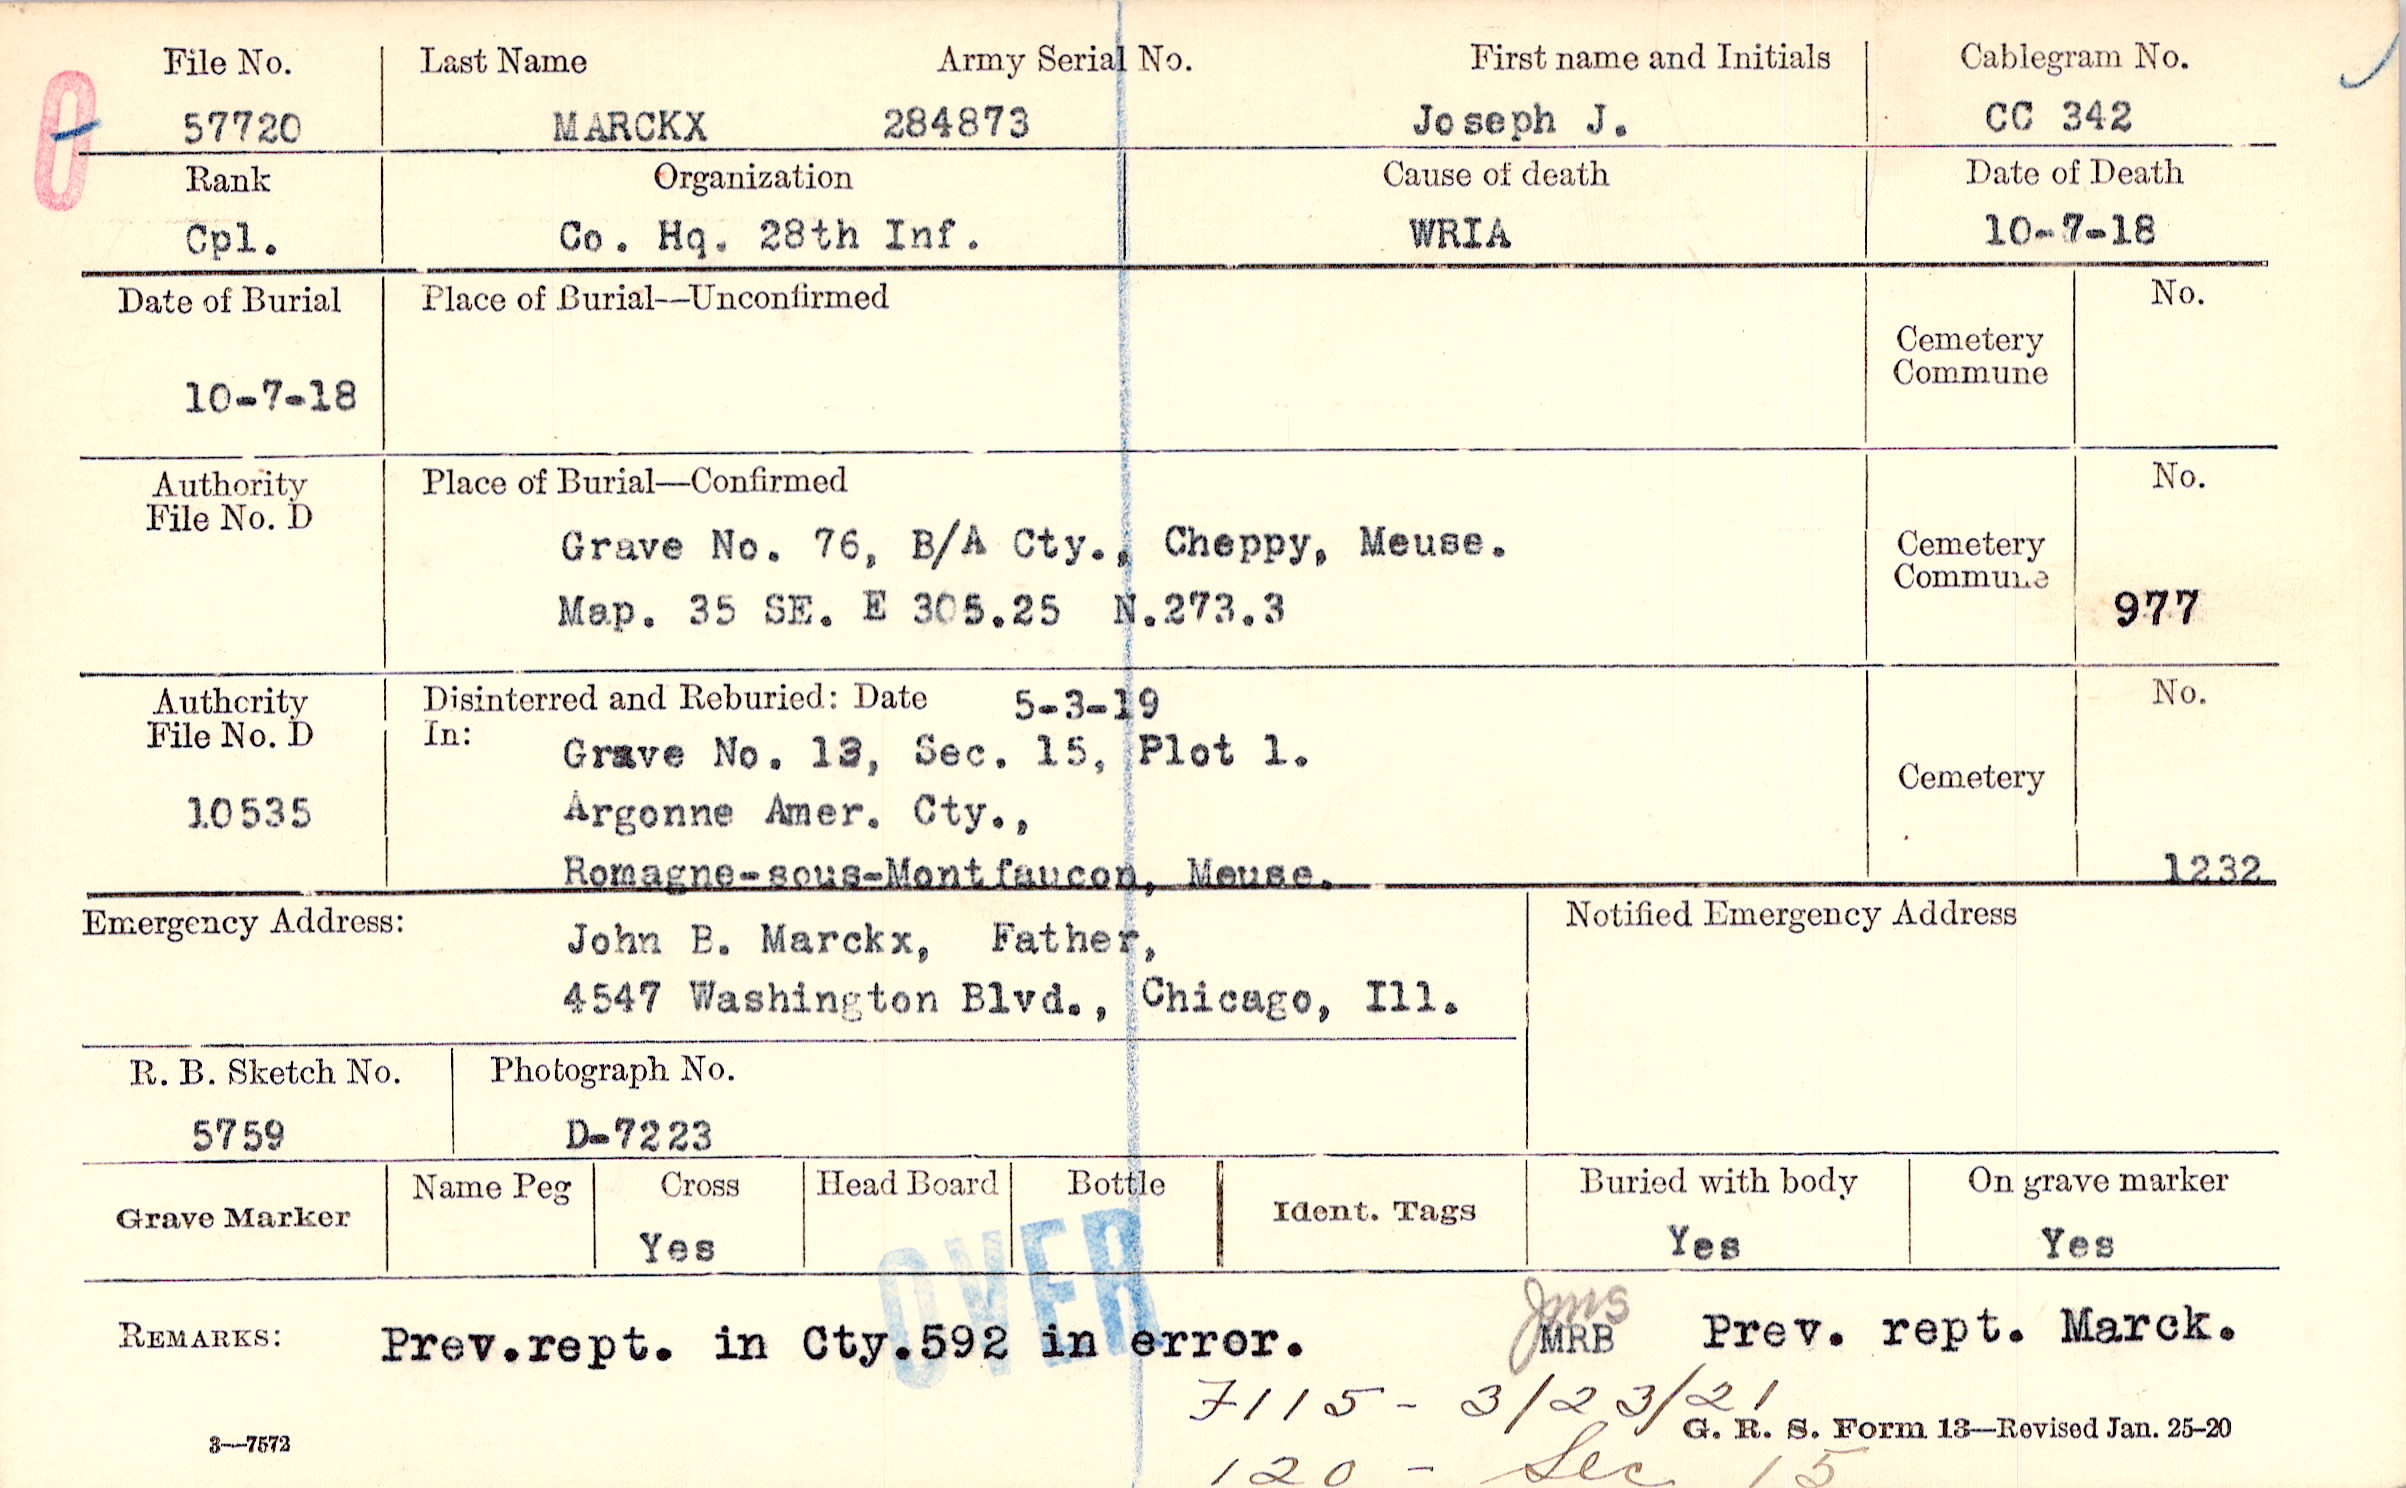 File No. Last Name Army Serial No. First name and Initials Cablegram No.
57720 MARCKX 284873 Joseph J. CC 342
Rank Organization Cause of death Date of Death
Cpl. Co. Hq. 28th Inf. WRIA 10-7-18
Date of Burial Place of Burial—Unconfirmed No.
Cemetery
Commune
10-7-18
Authority Place of Burial—Confirmed No.
File No. D
Grave No. 76, B/A Cty., Cheppy, Meuse. Cemetery
Commune
Map. 35 SE. E 305.25 N.273.3 977
Authority Disinterred and Reburied: Date 5-3-19 No.
File No. D In:
Grave No. 13, Sec. 15, Plot 1.
Cemetery
10535 Argonne Amer. Cty.,
Romagne-sous-Montfaucon, Meuse. 1232
Emergency Address: Notified Emergency Address
John B. Marckx, Father,
4547 Washington Blvd., Chicago, Ill.
R. B. Sketch No. Photograph No.
5759 D-7223
Grave Marker Name Peg Cross Head Board Bottle Ident. Tags Buried with body On grave marker
Yes Yes Yes
OVER
REMARKS: Prev.rept. in Cty.592 in error. JMS MRB Prev. rept. Marck.
7115 - 3/23/21
3—7572 G. R. S. Form 13—Revised Jan. 25-20
120 - Sec 15